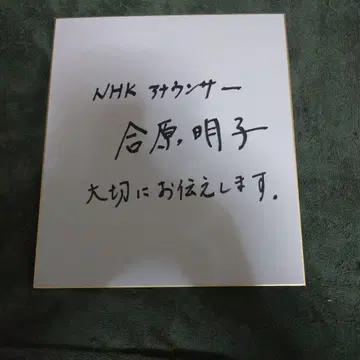 NHK アナウンサー
合原明子
大切にお伝えします.